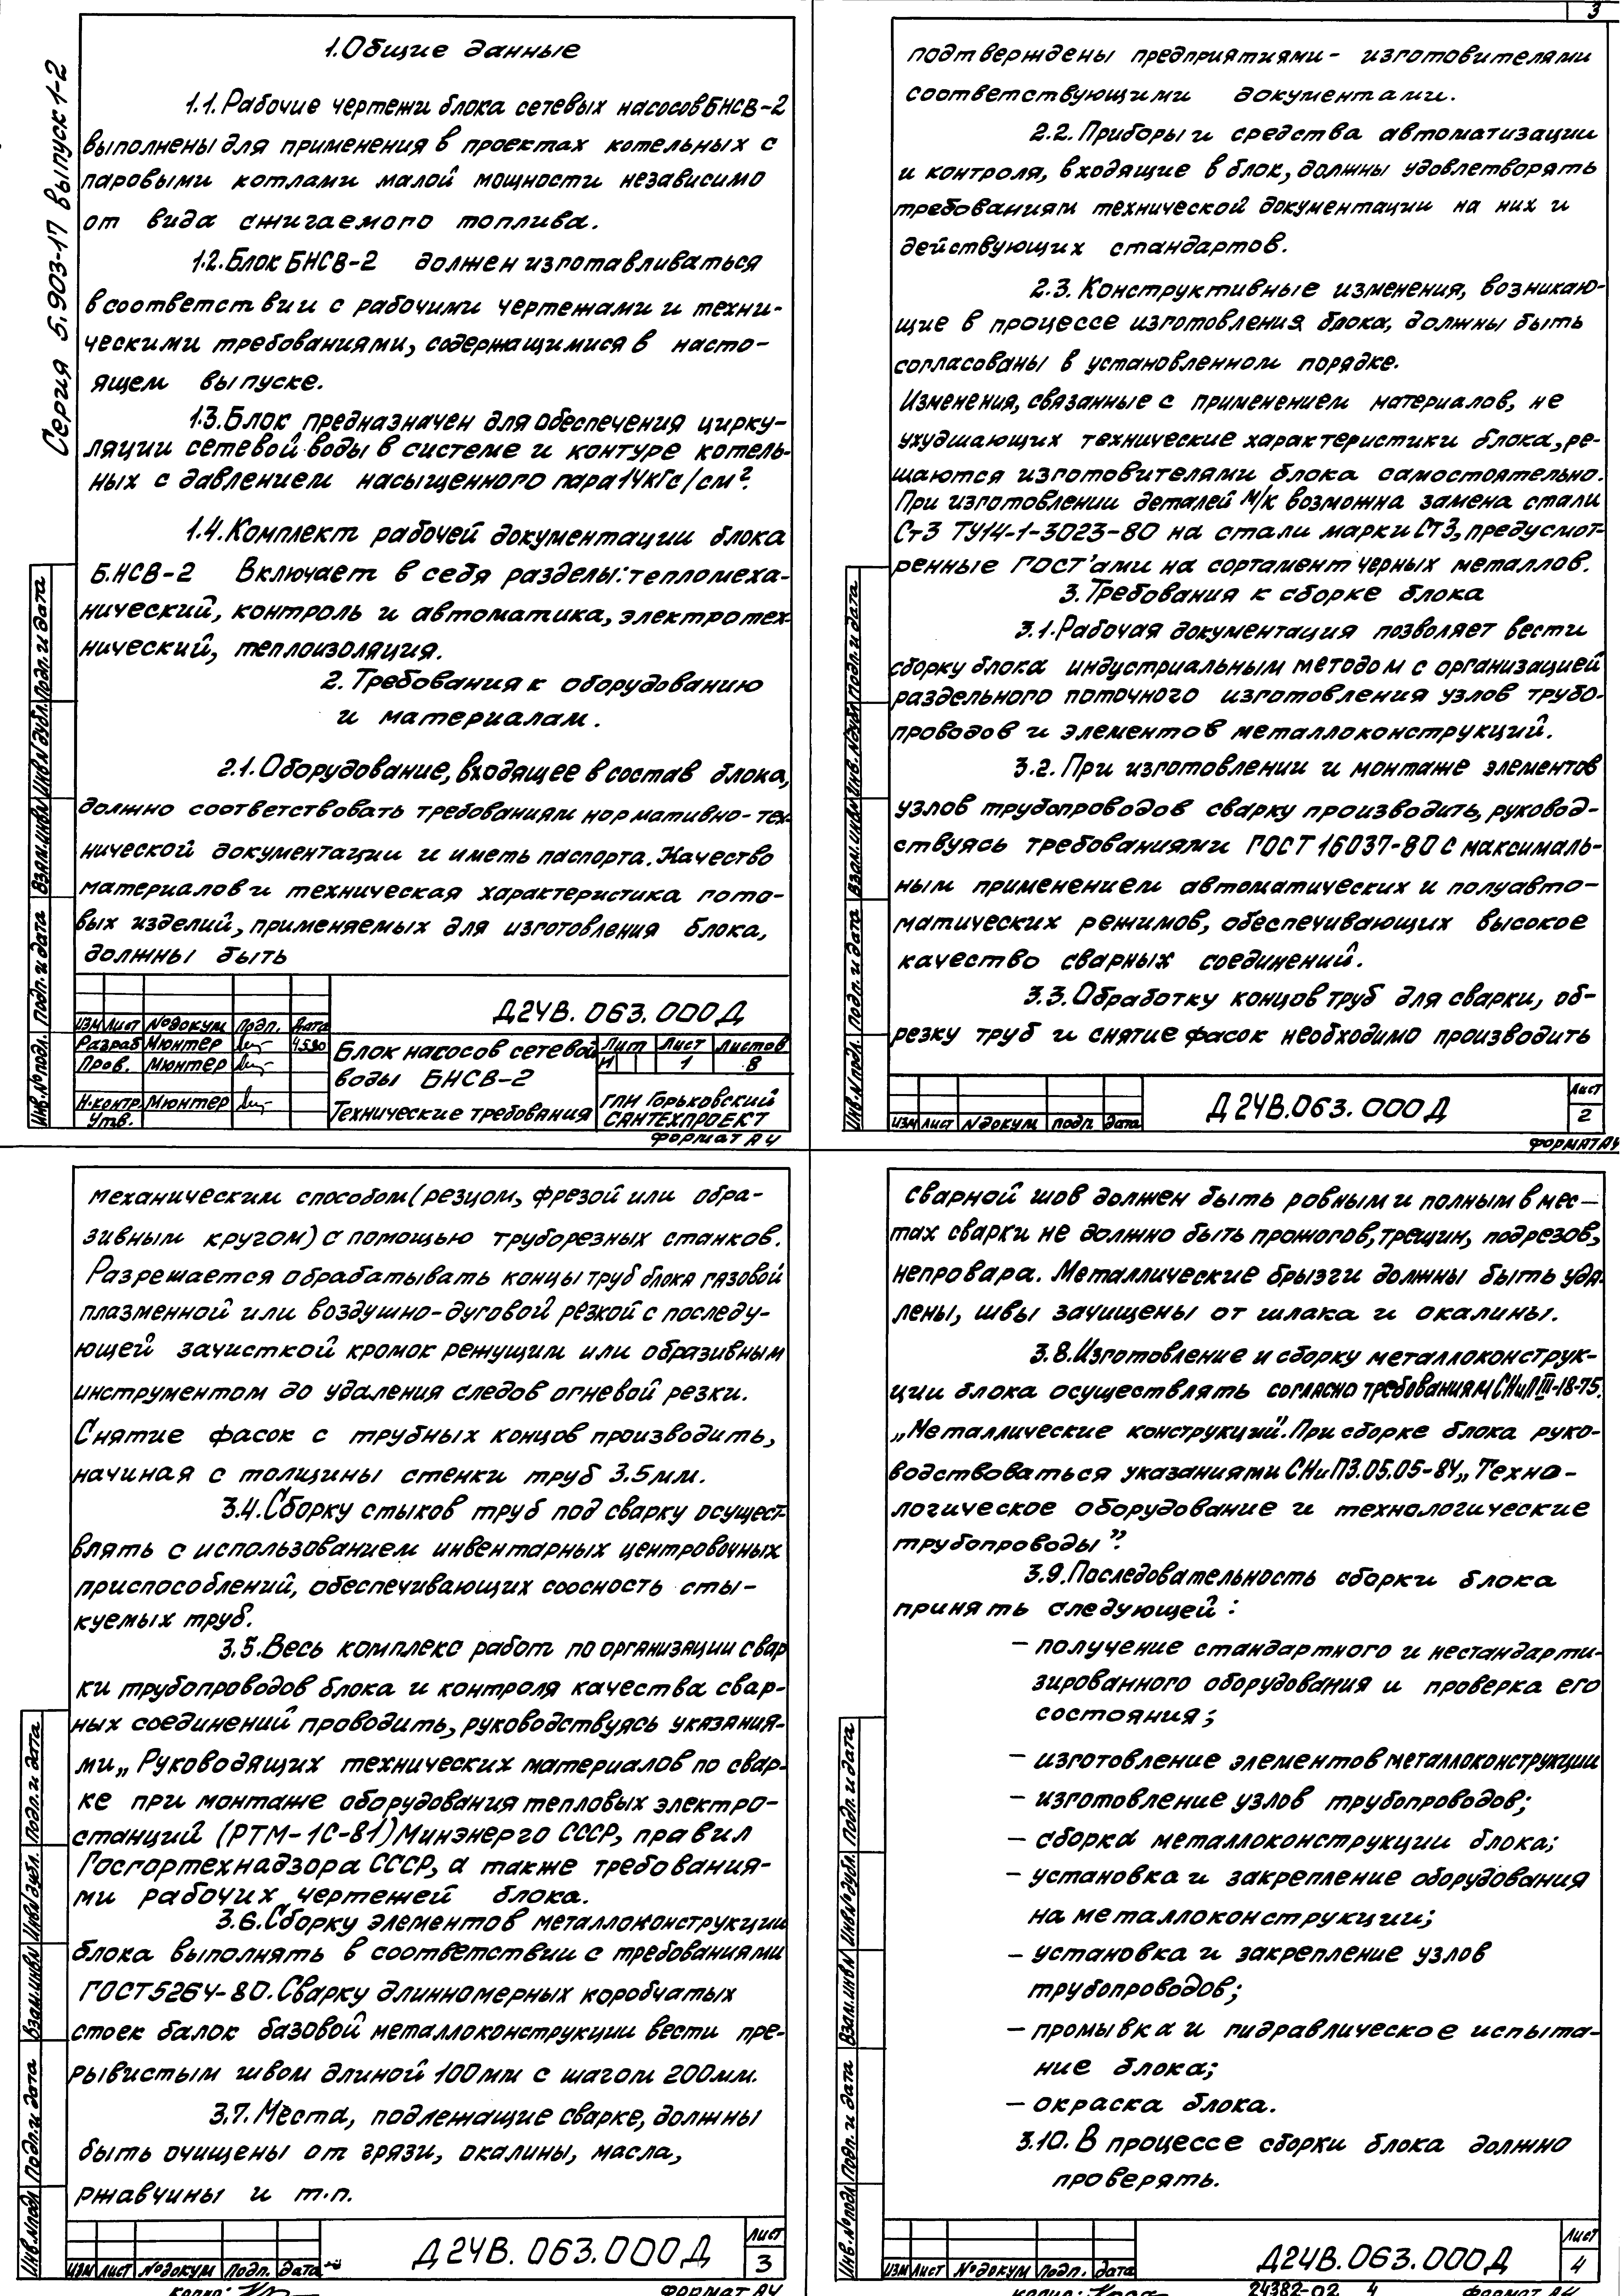 Серия 5.903-17 выпуск 1-2
1. Общие данные
1.1. Рабочие чертежи блока сетевых насосов БНСВ-2
выполнены для применения в проектах котельных с
паровыми котлами малой мощности независимо
от вида сжигаемого топлива.
1.2. Блок БНСВ-2 должен изготавливаться
в соответствии с рабочими чертежами и техни-
ческими требованиями, содержащимися в насто-
ящем выпуске.
1.3. Блок предназначен для обеспечения цирку-
ляции сетевой воды в системе и контуре котель-
ных с давлением насыщенного пара 14 кгс/см².
1.4. Комплект рабочей документации блока
БНСВ-2 включает в себя разделы: тепломеха-
нический, контроль и автоматика, электротех-
нический, теплоизоляция.
2. Требования к оборудованию
и материалам.
2.1. Оборудование, входящее в состав блока,
должно соответствовать требованиям нормативно-тех-
нической документации и иметь паспорта. Качество
материалов и техническая характеристика гото-
вых изделий, применяемых для изготовления блока,
должны быть
Д24В.063.000Д
Изм Лист № докум Подп. Дата
Разраб Мюнтер 4.5.90
Пров. Мюнтер
Н.контр Мюнтер
Утв.
Блок насосов сетевой
воды БНСВ-2
Технические требования
Лит Лист Листов
И 1 8
ГПИ Горьковский
САНТЕХПРОЕКТ
Формат А4
Инв.№ подл. Подп. и дата Взам.инв.№ Инв.№ дубл. Подп. и дата
3
подтверждены предприятиями- изготовителями
соответствующими документами.
2.2. Приборы и средства автоматизации
и контроля, входящие в блок, должны удовлетворять
требованиям технической документации на них и
действующих стандартов.
2.3. Конструктивные изменения, возникаю-
щие в процессе изготовления блока, должны быть
согласованы в установленном порядке.
Изменения, связанные с применением материалов, не
ухудшающих технические характеристики блока, ре-
шаются изготовителями блока самостоятельно.
При изготовлении деталей М/к возможна замена стали
Ст3 ТУ14-1-3023-80 на стали марки Ст3, предусмот-
ренные ГОСТ'ами на сортамент черных металлов.
3. Требования к сборке блока
3.1. Рабочая документация позволяет вести
сборку блока индустриальным методом с организацией
раздельного поточного изготовления узлов трубо-
проводов и элементов металлоконструкций.
3.2. При изготовлении и монтаже элементов
узлов трубопроводов сварку производить, руковод-
ствуясь требованиями ГОСТ 16037-80 с максималь-
ным применением автоматических и полуавто-
матических режимов, обеспечивающих высокое
качество сварных соединений.
3.3. Обработку концов труб для сварки, об-
резку труб и снятие фасок необходимо производить
Изм Лист № докум Подп. Дата
Д24В.063.000Д
Лист
2
Формат А4
Инв.№ подл. Подп. и дата Взам.инв.№ Инв.№ дубл. Подп. и дата
механическим способом (резцом, фрезой или обра-
зивным кругом) с помощью труборезных станков.
Разрешается обрабатывать концы труб блока газовой
плазменной или воздушно-дуговой резкой с последу-
ющей зачисткой кромок режущим или образивным
инструментом до удаления следов огневой резки.
Снятие фасок с трубных концов производить,
начиная с толщины стенки труб 3.5мм.
3.4. Сборку стыков труб под сварку осущест-
влять с использованием инвентарных центровочных
приспособлений, обеспечивающих соосность сты-
куемых труб.
3.5. Весь комплекс работ по организации свар
ки трубопроводов блока и контроля качества свар-
ных соединений проводить, руководствуясь указания-
ми „Руководящих технических материалов по свар-
ке при монтаже оборудования тепловых электро-
станций (РТМ-1С-81) Минэнерго СССР, правил
Госгортехнадзора СССР, а также требования-
ми рабочих чертежей блока.
3.6. Сборку элементов металлоконструкции
блока выполнять в соответствии с требованиями
ГОСТ 5264-80. Сварку длинномерных коробчатых
стоек балок базовой металлоконструкции вести пре-
рывистым швом длиной 100мм с шагом 200мм.
3.7. Места, подлежащие сварке, должны
быть очищены от грязи, окалины, масла,
ржавчины и т.п.
Изм Лист № докум Подп. Дата
Д24В.063.000Д
Лист
3
Копир:
Формат А4
Инв.№ подл Подп. и дата Взам.инв.№ Инв.№ дубл. Подп. и дата
сварной шов должен быть ровным и полным в мес-
тах сварки не должно быть прожогов, трещин, подрезов,
непровара. Металлические брызги должны быть уда-
лены, швы зачищены от шлака и окалины.
3.8. Изготовление и сборку металлоконструк-
ции блока осуществлять согласно требованиям СНиП III-18-75.
„Металлические конструкции". При сборке блока руко-
водствоваться указаниями СНиП3.05.05-84 „Техно-
логическое оборудование и технологические
трубопроводы".
3.9. Последовательность сборки блока
принять следующей:
- получение стандартного и нестандарти-
зированного оборудования и проверка его
состояния;
- изготовление элементов металлоконструкции
- изготовление узлов трубопроводов;
- сборка металлоконструкции блока;
- установка и закрепление оборудования
на металлоконструкции;
- установка и закрепление узлов
трубопроводов;
- промывка и гидравлическое испыта-
ние блока;
- окраска блока.
3.10. В процессе сборки блока должно
проверять.
Изм Лист № докум Подп. Дата
Д24В.063.000Д
Лист
4
Копир:
24382-02 4
Формат А4
Инв.№ подл Подп. и дата Взам.инв.№ Инв.№ дубл. Подп. и дата